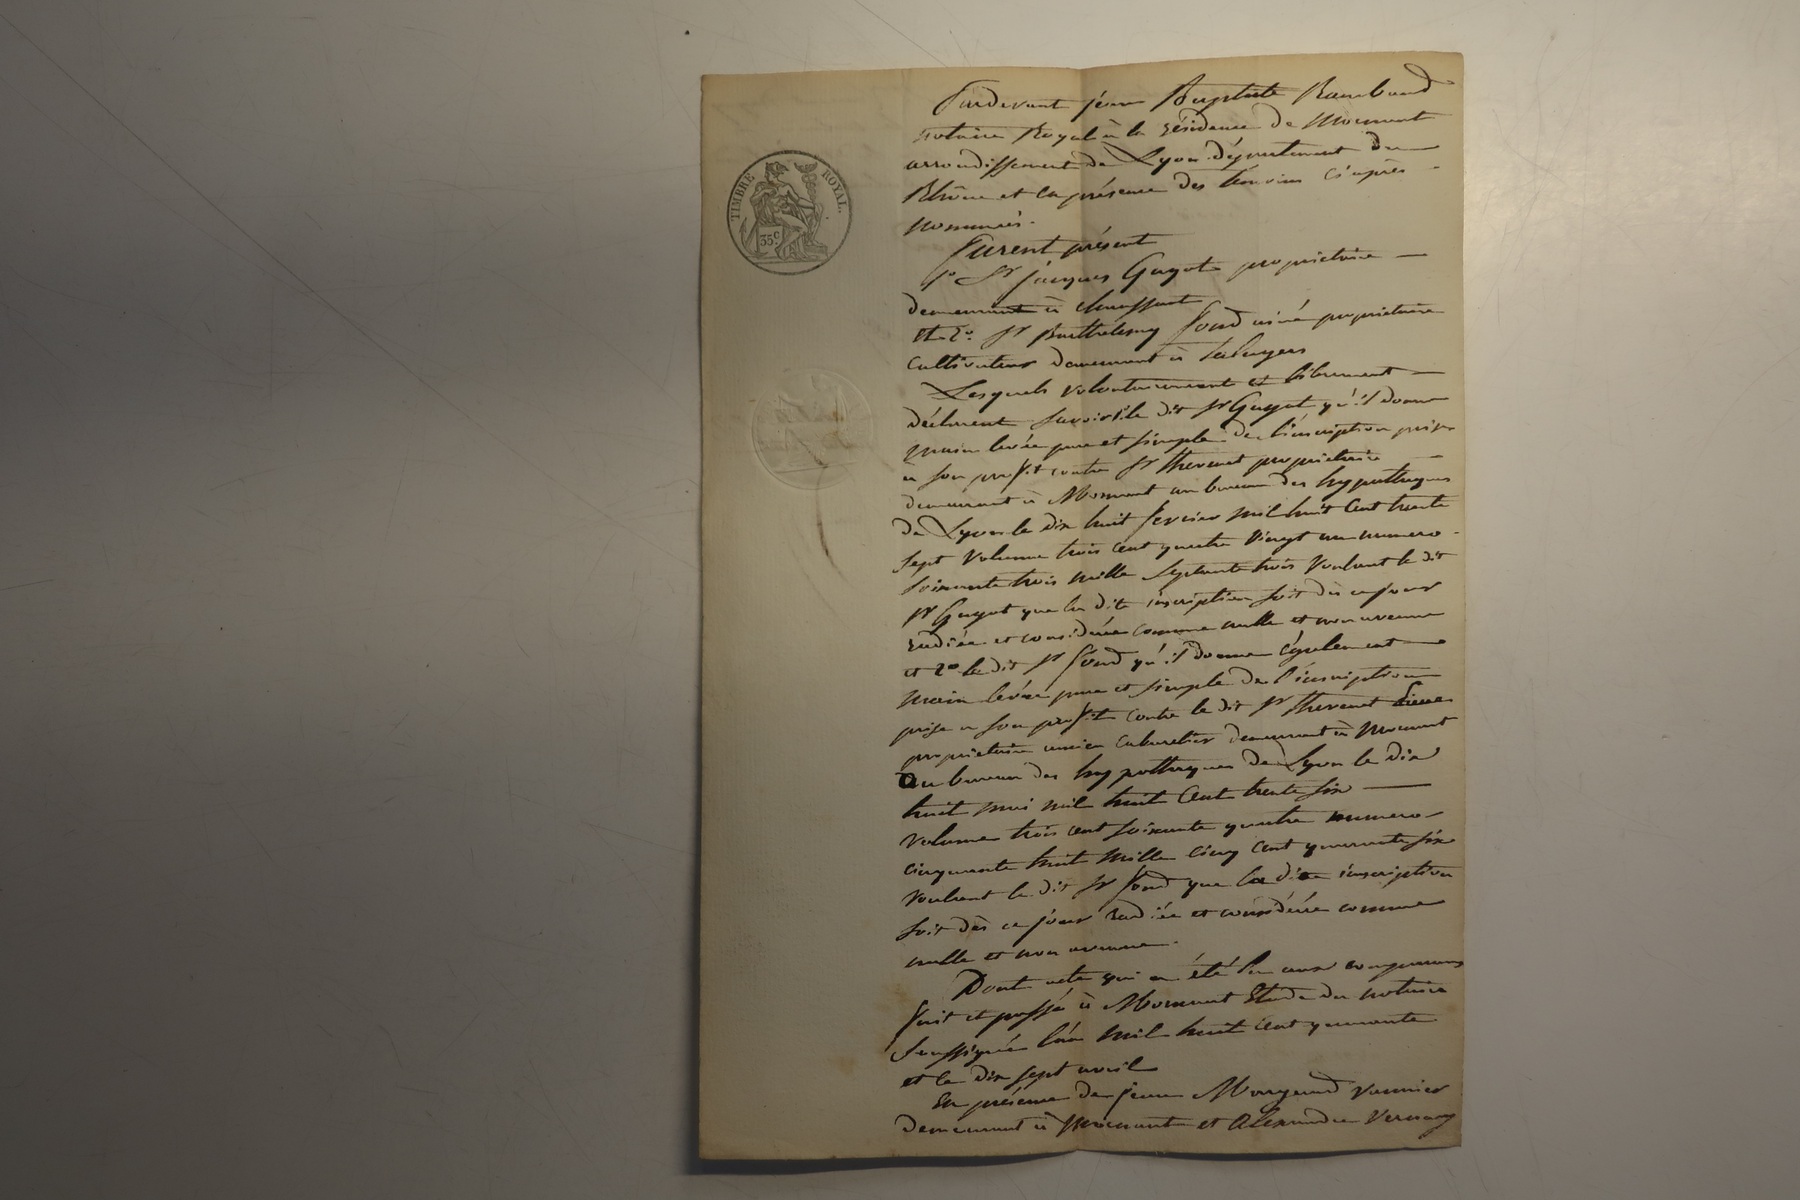 TIMBRE ROYAL.
35 c.
Pardevant jean Baptiste Rambaud
notaire Royal à la résidence de Mornant
arrondissement de Lyon département du
Rhône et en présence des témoins ci après
nommés.
furent présent
1o Sr jacques Guyot propriétaire
demeurant à chaussant
Et 2o. Sr Barthélemy fond ainé propriétaire
cultivateur demeurant à
Lesquels volontairement et librement
déclarent savoir le dit Sr Guyot qu'il donne
main levée pure et simple de l'inscription prise
à son profit contre Sr thevenet propriétaire
demeurant à Mornant au bureau des hypothèques
de Lyon le dix huit fevrier mil huit cent trente
sept volume trois cent quatre vingt un numero
soixante trois mille septante trois voulant le dit
Sr Guyot que la dite inscription soit dès ce jour
radiée et considérée comme nulle et non avenue
et 2o le dit Sr fond qu'il donne également
main levée pure et simple de l'inscription
prise a son profit contre le dit Sr thevenet
propriétaire ancien cabaretier demeurant à Mornant
au bureau des hypothèques de Lyon le dix
huit mai mil huit cent trente six
volume trois cent soixante quatre numero
cinquante huit mille cinq cent quarante six
voulant le dit Sr fond que la dite inscription
soit dès ce jour radiée et considérée comme
nulle et non avenue.
Dont acte qui a été lu aux comparans
fait et passé à Mornant Etude du notaire
soussigné l'an mil huit cent quarante
et le dix sept avril
En présence de jean vannier
demeurant à Mornant et Alexandre